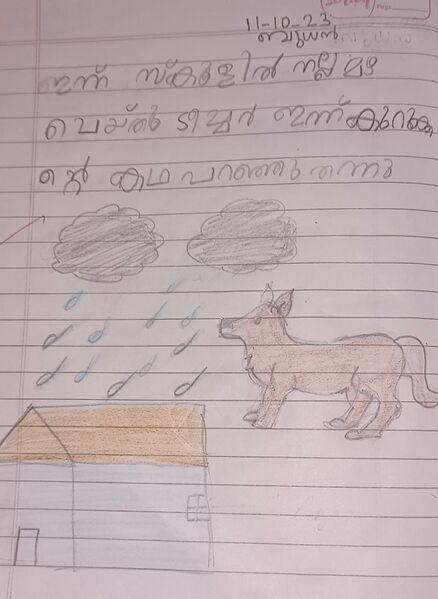 11-10-23
ബുധൻ
ഇന്ന് സ്കൂളിൽ നല്ല മഴ
പെയ്തു ടീച്ചർ ഇന്ന് കുറുക്ക
ന്റെ കഥ പറഞ്ഞു തന്നു